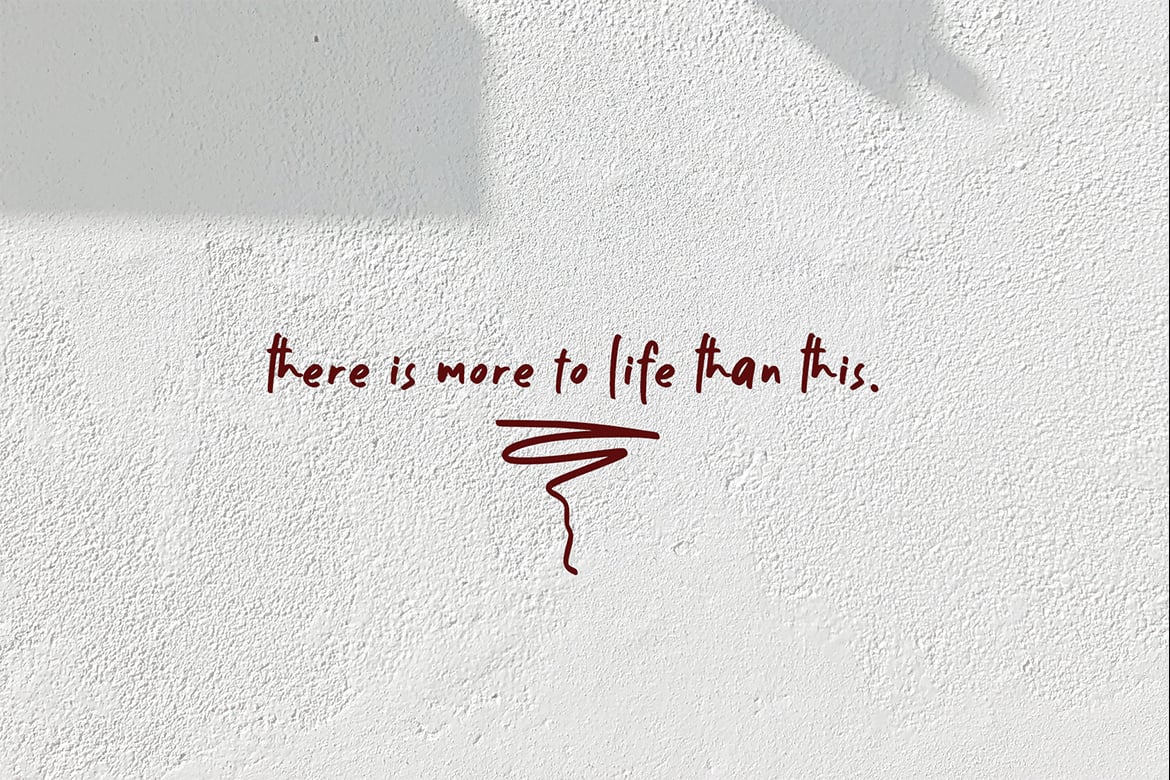 there is more to life than this.